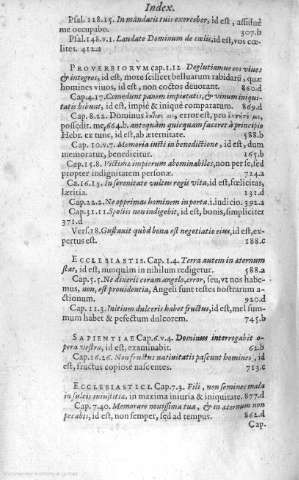 Index.
Psal. 118.15. In mandatis tuis exercebor, id est, assidue
me occupabo. 507.b
Psal. 148.v.1. Laudate Dominum de cœlis, id est, vos cœ-
lites. 412.a
PROVERBIORVM cap. 1.12. Deglutiamus eos viues
& integros, id est, more scilicet belluarum rabidarū, quæ
homines viuos, id est, non coctos deuorant. 880.d
Cap. 4.17. Comedunt panem impietatis, & vinum iniqui-
tatis bibunt, id est, impiè & iniquè comparatum. 869.d
Cap. 8.22. Dominus error est, pro
possedit. me, 664.b. antequam quicquam faceret à principio
Hebr. ex tunc, id est, ab æternitate. 588.b
Cap. 10.v.7. Memoria iusti in benedictione, id est, dum
memoratur, benedicitur. 165.b
Cap. 15.8. Victimæ impiorum abominabiles, non per se, sed
propter indignitatem personæ. 724.a
Ca. 16.15. In serenitate vultus regis vita, id est, fœlicitas,
lætitia. 131.d
Cap. 22.22. Ne opprimas hominem in porta. i. iudicio. 392.a
Cap. 31.11. Spoliis non indigebit, id est, bonis, simpliciter
371.d
Vers. 18. Gustauit quòd bona est negotiatio eius, id est, ex-
pertus est. 188.c
ECCLESIASTIS. Cap. 1.4. Terra autem in æternum
stat, id est, nunquam in nihilum redigetur. 588.a
Cap. 5.5. Ne dixeris coram angelo, error, seu, vt nos habe-
mus, non, est prouidentia, Angeli sunt testes nostrarum a-
ctionum. 910.d
Cap. 11.3. Initium dulceris habet fructus, id est, mel sum-
mum habet & pefectum dulcorem. 745.b
SAPIENTIAE Cap. 6.v.4. Dominus interrogabit o-
pera vestra, id est, examinabit. 62.b
Cap. 16.26. Non fructus natiuitatis pascunt homines, id
est, fructus copiosè nascentes. 713.c
ECCLESIASTICI. Cap. 7.3. Fili, non semines mala
in sulcis iniustitiæ, in maxima iniuria & iniquitate. 877.d
Cap. 7.40. Memorare nouissima tua, & in æternum non
peccabis, id est, non semper, sed ad tempus. 862.d
Cap.